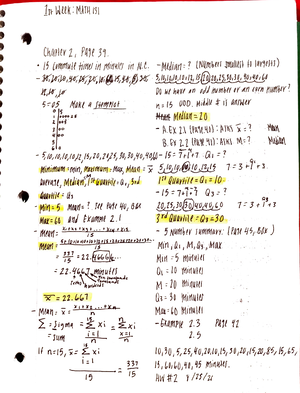 1st Week: MATH 151
Chapter 2, Page 39.
• 15 Commute times in minutes in N.C.
5=05 Make a Stemplot
- 5,10,10,10,10,12,15,20,20,25,30,30,40,40,60
Minimum=min, Maximum=Max, Mean = x̄
average, Median, 1st Quartile = Q1, 3rd
Quartile = Q3
Min = 5 Mean = ? See Page 40, Box
Max = 60 and Example 2.1
Mean: x1+x2+...+x14+x15
15
Mean:
= 337 = 22.4666...
15
≈ 22.4667 minutes
x̄ = 22.667
- Mean: x̄ = x1+x2+...+xn
n
Σ = Sigma = Σ xi = Σ xi
= Sum i=1
If n=15, x̄ = Σ xi = 337
15 15
- Median = ? (Numbers smallest to largest)
5,10,10,10,10,12,15,20,20,25,30,30,40,40,60
Do we have an odd number or an even number?
n = 15 ODD. Middle # is answer
Median = 20
A. EX 2.1 (Page 40): Asks x̄ = ? Mean
B. EX 2.2 (Page 41): Asks M = ? Median
- 15 = 7+1+7 Q1 = ?
5,10,10,10,10,12,15 7 = 3+1+3
1st Quartile = Q1 = 10
- 15 = 7+1+7 Q3 = ?
20,25,30,30,40,40,60 7 = 3+1+3
3rd Quartile = Q3 = 30
- 5 Number Summary: (Page 45, Box)
Min, Q1, M, Q3, Max
Min = 5 minutes
Q1 = 10 minutes
M = 20 minutes
Q3 = 30 minutes
Max = 60 minutes
- Example 2.3 Page 42
2.5
10,30,5,25,40,20,10,15,30,20,15,20,85,15,65,
15,60,60,40,45 minutes.
HW #2 8/25/21